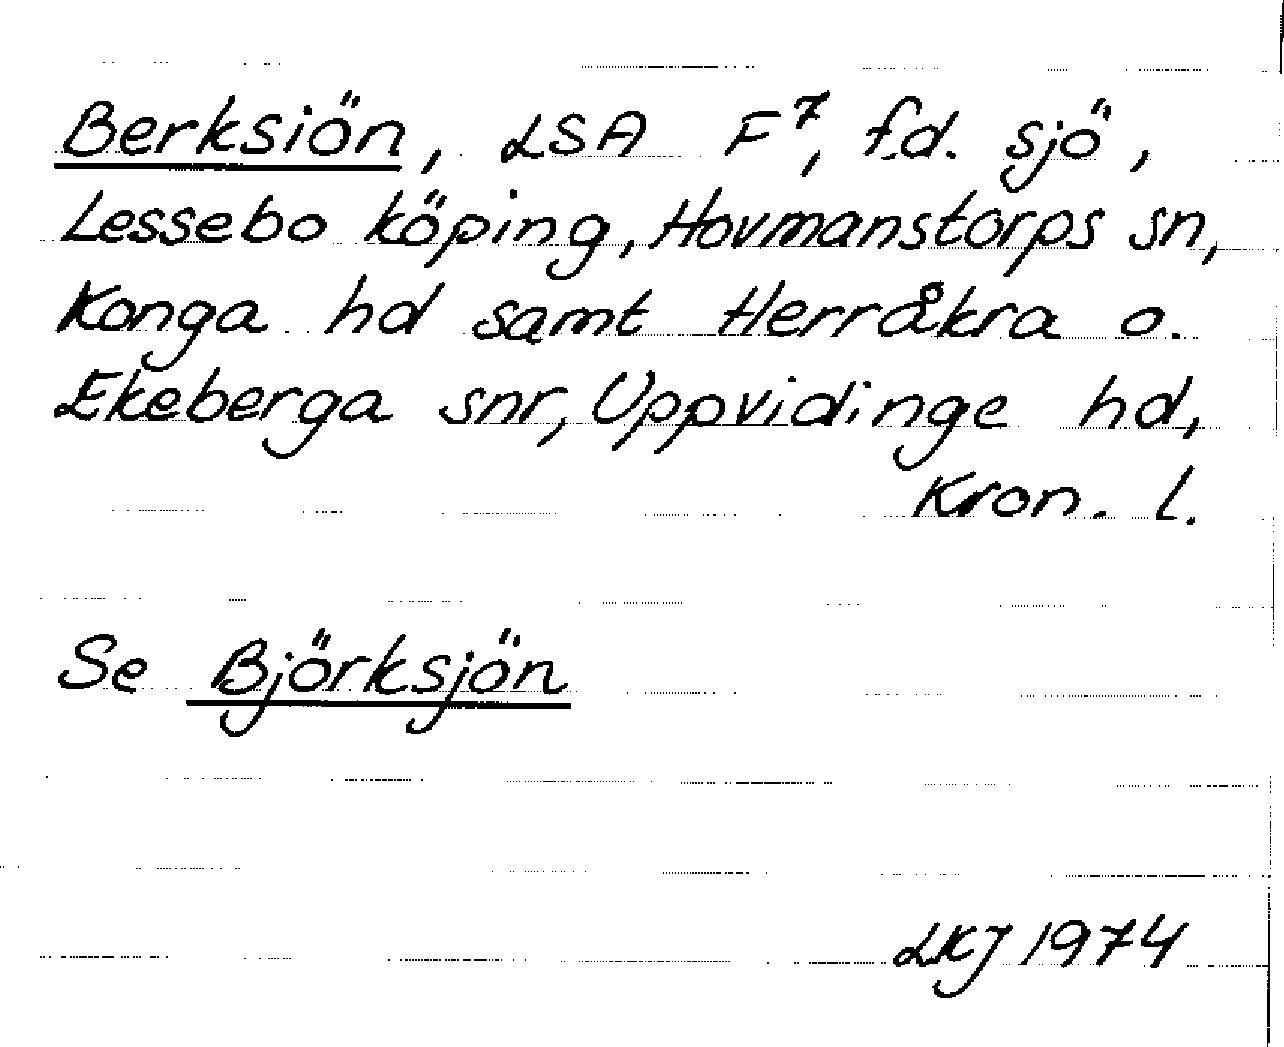 Berksiön, LSA F⁷, f.d. sjö,
Lessebo köping, Hovmanstorps sn,
Konga hd samt Herråkra o.
Ekeberga snr, Uppvidinge hd,
Kron. l.
Se Björksjön
LKJ 1974